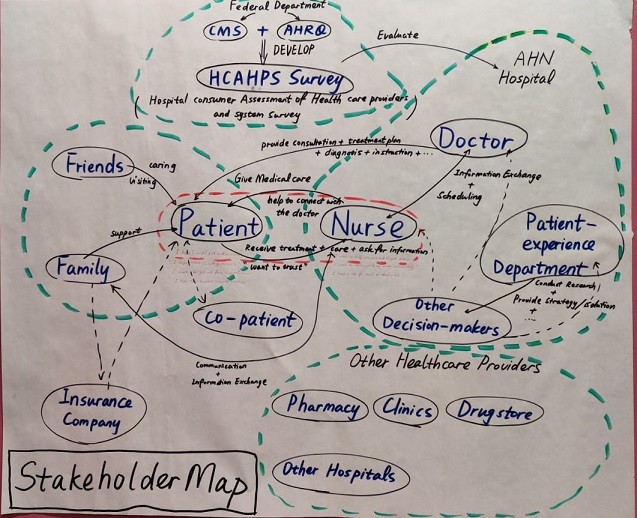 Federal Department
CMS + AHRQ
DEVELOP
Evaluate
HCAHPS Survey
AHN
Hospital
(Hospital consumer Assessment of Health care providers
and system Survey)
Doctor
provide consultation + treatment plan
+ diagnosis + instruction + ...
Friends
caring
visiting
Give Medical care
Information Exchange
+
Scheduling
help to connect with
the doctor
Patient
Nurse
Patient-
experience
Department
support
Receive treatment + care + ask for information
want to trust
Family
Conduct Research
+
Provide Strategy/Solution
+
...
Other
Decision-makers
Co-patient
Communication
+
Information Exchange
Other Healthcare Providers
Insurance
Company
Pharmacy
Clinics
Drugstore
Other Hospitals
Stakeholder Map